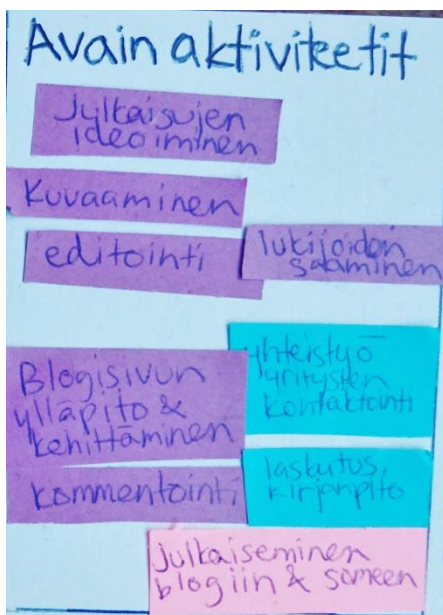 Avain aktiviteetit
Julkaisujen
ideoiminen
Kuvaaminen
editointi
lukijoiden
saaminen
Blogisivun
ylläpito &
kehittäminen
yhteistyö
yritysten
kontaktointi
kommentointi
laskutus,
kirjanpito
julkaiseminen
blogiin & someen